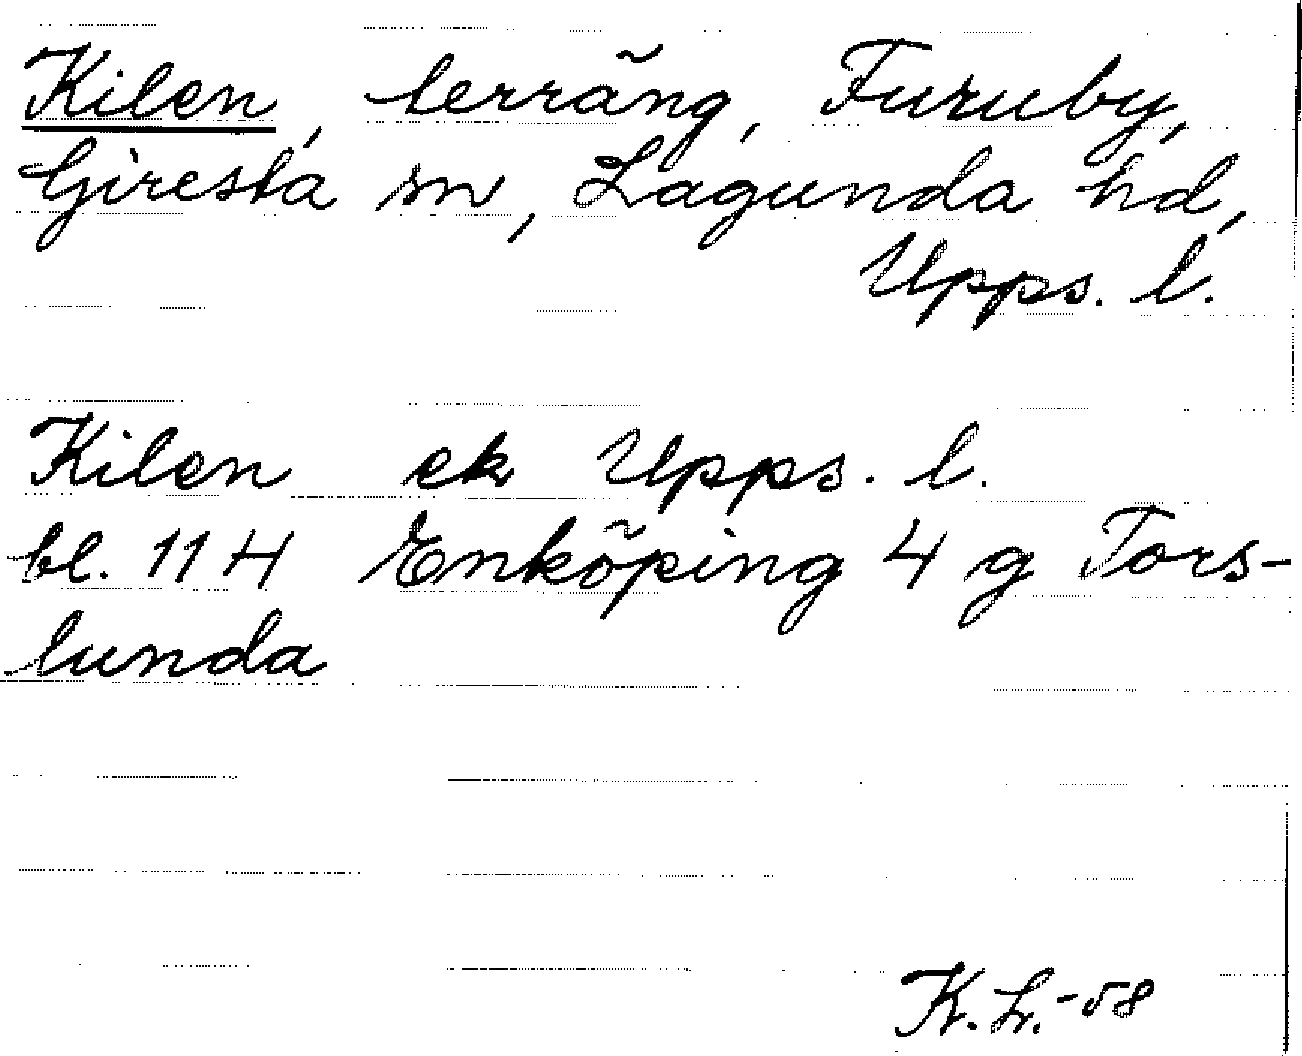 Kilen, terräng, Furuby,
Giresta sn, Lagunda hd,
Upps. l.
Kilen ek Upps. l.
bl. 114 Enköping 4 g Tors-
lunda
K. L. -58